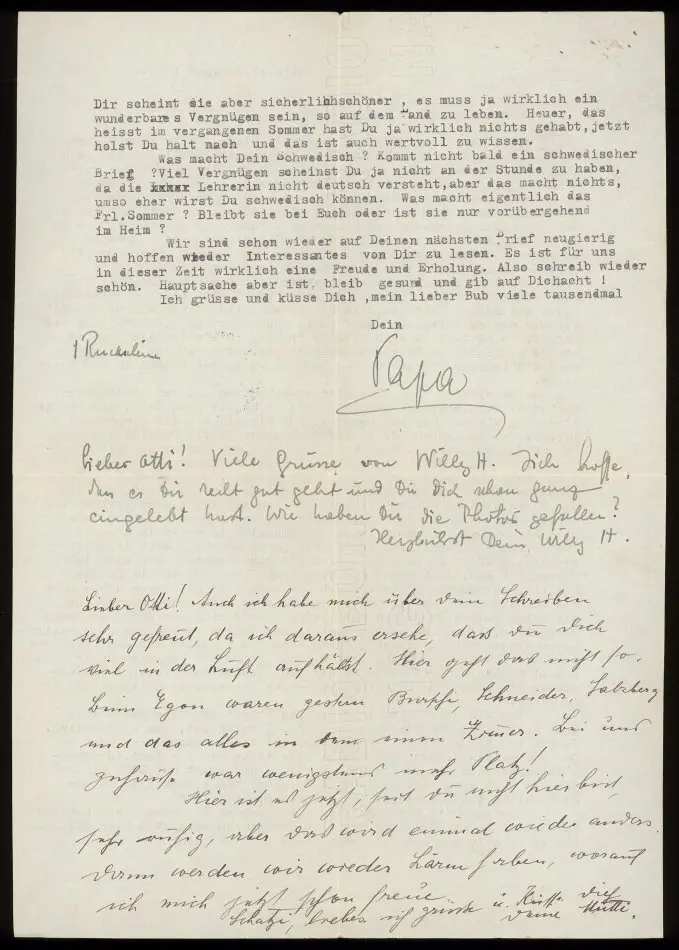 Dir scheint sie aber sicherlihhschöner , es muss ja wirklich ein
wunderbares Vergnügen sein, so auf dem Land zu leben. Heuer, das
heisst im vergangenen Sommer hast Du ja wirklich nichts gehabt,jetzt
holst Du halt nach und das ist auch wertvoll zu wissen.
Was macht Dein Schwedisch ? Kommt nicht bald ein schwedischer
Brief ?Viel Vergnügen scheinst Du ja nicht an der Stunde zu haben,
da die xxxxx Lehrerin nicht deutsch versteht,aber das macht nichts,
umso eher wirst Du schwedisch können. Was macht eigentlich das
Frl.Sommer ? Bleibt sie bei Euch oder ist sie nur vorübergehend
im Heim ?
Wir sind schon wieder auf Deinen nächsten Brief neugierig
und hoffen wieder Interessantes von Dir zu lesen. Es ist für uns
in dieser Zeit wirklich eine Freude und Erholung. Also schreib wieder
schön. Hauptsache aber ist, bleib gesund und gib auf Dichacht !
Ich grüsse und küsse Dich ,mein lieber Bub viele tausendmal
Dein
Papa
Lieber Otti! Viele Grüsse von Willy H. Ich hoffe,
das es Dir recht gut geht und Du Dich schon ganz
eingelebt hast. Wie haben Dir die Photos gefallen?
Herzlichst Dein Willy H.
Lieber Otti! Auch ich habe mich über Dein Schreiben
sehr gefreut, da ich daraus ersehe, dass du Dich
viel in der Luft aufhältst. Hier geht das nicht so.
Beim Egon waren gestern Schneider, Salzberg
und das alles in dem einen Zimmer. Bei uns
zuhause war wenigstens mehr Platz!
Hier ist es jetzt, seit Du nicht hier bist,
sehr ruhig, aber das wird einmal wieder anders.
Dann werden wir wieder Lärm haben, worauf
ich mich jetzt schon freue.
Schatzi, ich grüsse u. Küsse Dich
Deine Mutti.